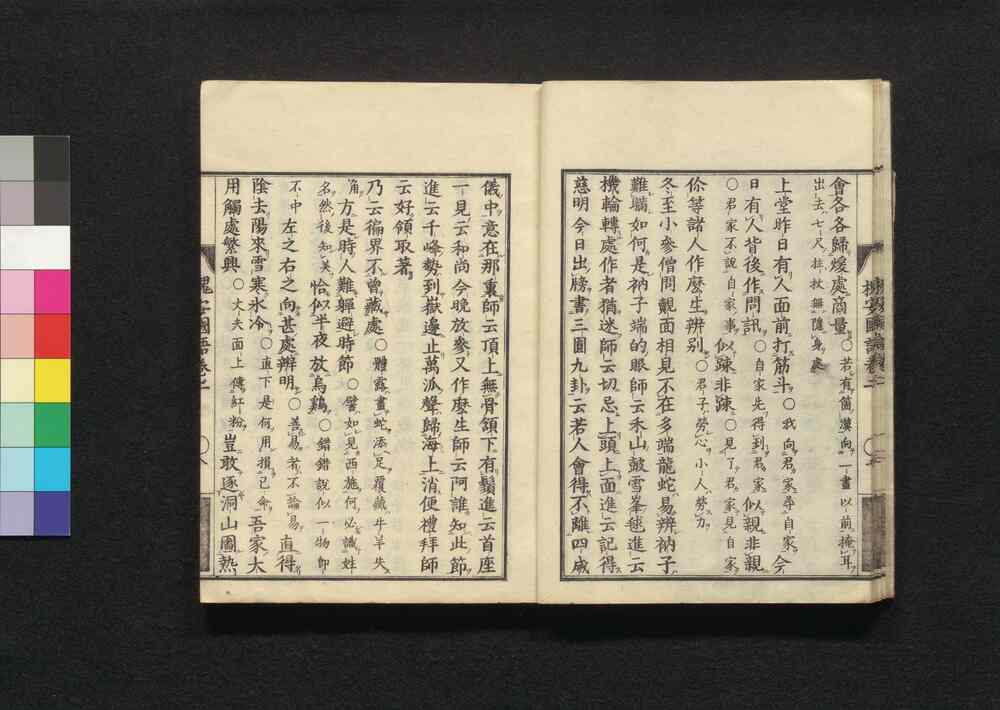 會各各歸煖處商量○若有箇漢向一畫以前掩耳
出去七尺拄杖無隨身處
上堂昨日有人面前打筋斗○我向君家尋自家今
日有人背後作問訊○自家先得到君家似親非親
○君家不說自家事似疎非疎○見了君家見自家
你等諸人作麼生辨別○君子勞心小人勞力
冬至小參僧問覿面相見不在多端龍蛇易辨衲子
難瞞如何是衲子端的眼師云禾山皷雪峯毬進云
機輪轉處作者猶迷師云切忌上頭上面進云記得
慈明今日出牓書三圓九卦云若人會得不離四威
儀中意在那裏師云頂上無骨頷下有鬚進云首座
一見云和尚今晚放參又作麼生師云阿誰知此節
進云千峰勢到嶽邊止萬派聲歸海上消便禮拜師
云好領取著
乃云徧界不曾藏處○體露畫蛇添足覆藏牛羊失
角方是時人難躱避時節○譬如見西施何必識姓
名然後知美恰似半夜放烏鷄○錯錯說似一物即
不中左之右之向甚處辨明○善易者不論易直得
陰去陽來雪寒氷冷○直下是何用損己命吾家大
用觸處繁興○丈夫面上傅紅粉豈敢逐洞山圖熱
槐安國語卷二